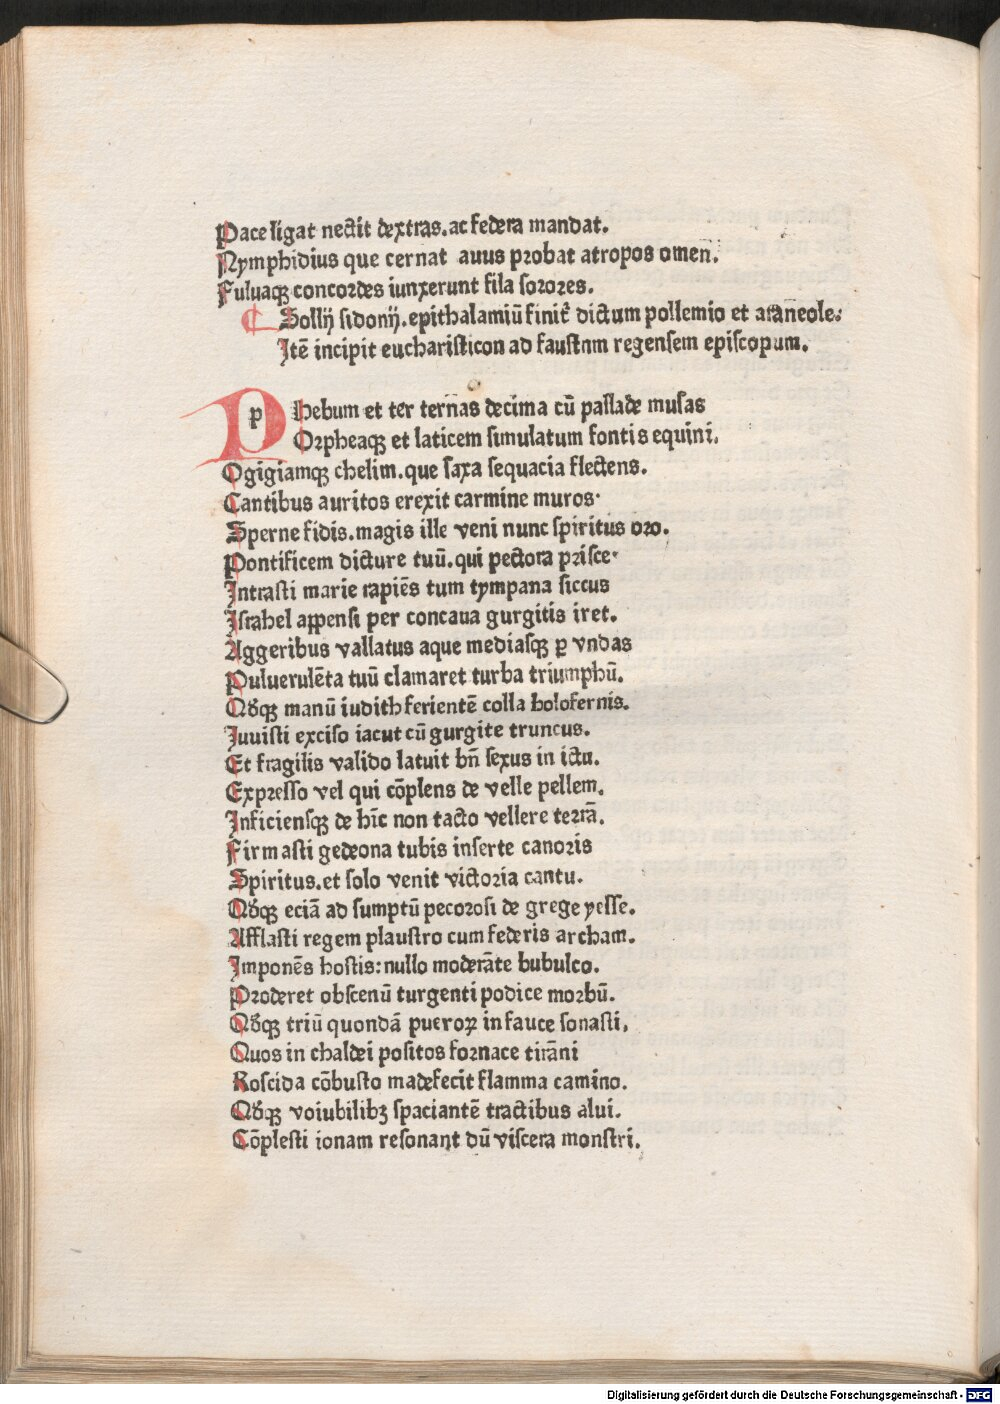 Pace ligat nectit dextras. ac federa mandat.
Nymphidius que cernat avus probat atropos omen.
Fuluaqꝫ concordes iunxerunt fila sorores.
Sollij sidonij. epithalamiū finit᷑ dictum pollemio et arāneole.
Itē incipit eucharisticon ad faustnm regensem episcopum.
Phebum et ter ternas decima cū pallade musas
Orpheaqꝫ et laticem simulatum fontis equini.
Ogigiamqꝫ chelim. que saxa sequacia flectens.
Cantibus auritos erexit carmine muros·
Sperne fidis. magis ille veni nunc spiritus oro.
Pontificem dicture tuū. qui pectora prisce·
Intrasti marie rapiēs tum tympana siccus
Israhel appensi per concaua gurgitis iret.
Aggeribus vallatus aque mediasqꝫ ꝑ vndas
Puluerulēta tuū clamaret turba triumphū.
Qůqꝫ manū iudith ferientē colla holofernis.
Iuvisti exciso iacut cū gurgite truncus.
Et fragilis valido latuit bn̄ sexus in ictu.
Expresso vel qui cōplens de velle pellem.
Inficiensqꝫ de hīc non tacto vellere terrā.
Firmasti gedeona tubis inserte canoris
Spiritus. et solo venit victoria cantu.
Qůqꝫ eciā ad sumptū pecorosi de grege yesse.
Afflasti regem plaustro cum federis archam.
Imponēs hostis: nullo moderāte bubulco.
Proderet obscenū turgenti podice morbū.
Qůqꝫ triū quondā pueroꝝ in fauce sonasti,
Quos in chaldei positos fornace tirāni
Roscida cōbusto madefecit flamma camino.
Qůqꝫ voiubilibꝫ spaciantē tractibus alui.
Cōplesti ionam resonant dū viscera monstri.
Digitalisierung gefördert durch die Deutsche Forschungsgemeinschaft - DFG